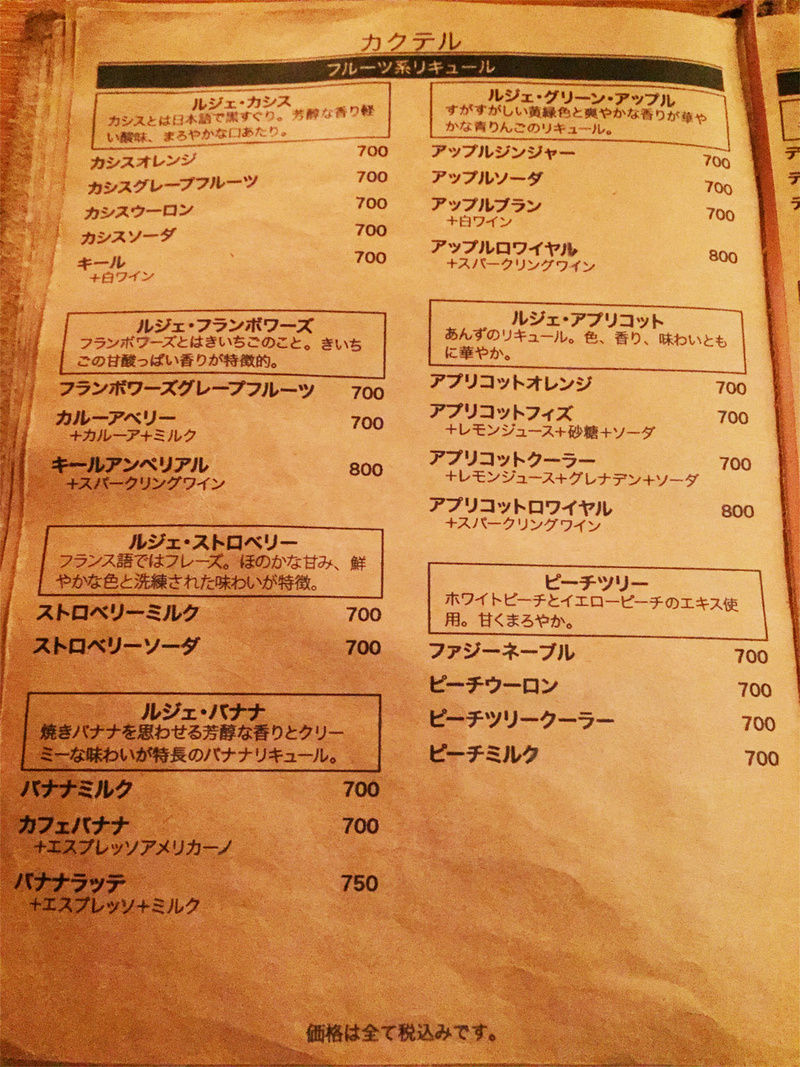 カクテル
フルーツ系リキュール
ルジェ・カシス
カシスとは日本語で黒すぐり。芳醇な香り軽
い酸味、まろやかな口あたり。
カシスオレンジ 700
カシスグレープフルーツ 700
カシスウーロン 700
カシスソーダ 700
キール 700
+白ワイン
ルジェ・フランボワーズ
フランボワーズとはきいちごのこと。きいち
ごの甘酸っぱい香りが特徴的。
フランボワーズグレープフルーツ 700
カルーアベリー 700
+カルーア+ミルク
キールアンペリアル 800
+スパークリングワイン
ルジェ・ストロベリー
フランス語ではフレーズ。ほのかな甘み、鮮
やかな色と洗練された味わいが特徴。
ストロベリーミルク 700
ストロベリーソーダ 700
ルジェ・バナナ
焼きバナナを思わせる芳醇な香りとクリー
ミーな味わいが特長のバナナリキュール。
バナナミルク 700
カフェバナナ 700
+エスプレッソアメリカーノ
バナナラッテ 750
+エスプレッソ+ミルク
ルジェ・グリーン・アップル
すがすがしい黄緑色と爽やかな香りが華や
かな青りんごのリキュール。
アップルジンジャー 700
アップルソーダ 700
アップルブラン 700
+白ワイン
アップルロワイヤル 800
+スパークリングワイン
ルジェ・アプリコット
あんずのリキュール。色、香り、味わいとも
に華やか。
アプリコットオレンジ 700
アプリコットフィズ 700
+レモンジュース+砂糖+ソーダ
アプリコットクーラー 700
+レモンジュース+グレナデン+ソーダ
アプリコットロワイヤル 800
+スパークリングワイン
ピーチツリー
ホワイトピーチとイエローピーチのエキス使
用。甘くまろやか。
ファジーネーブル 700
ピーチウーロン 700
ピーチツリークーラー 700
ピーチミルク 700
価格は全て税込みです。